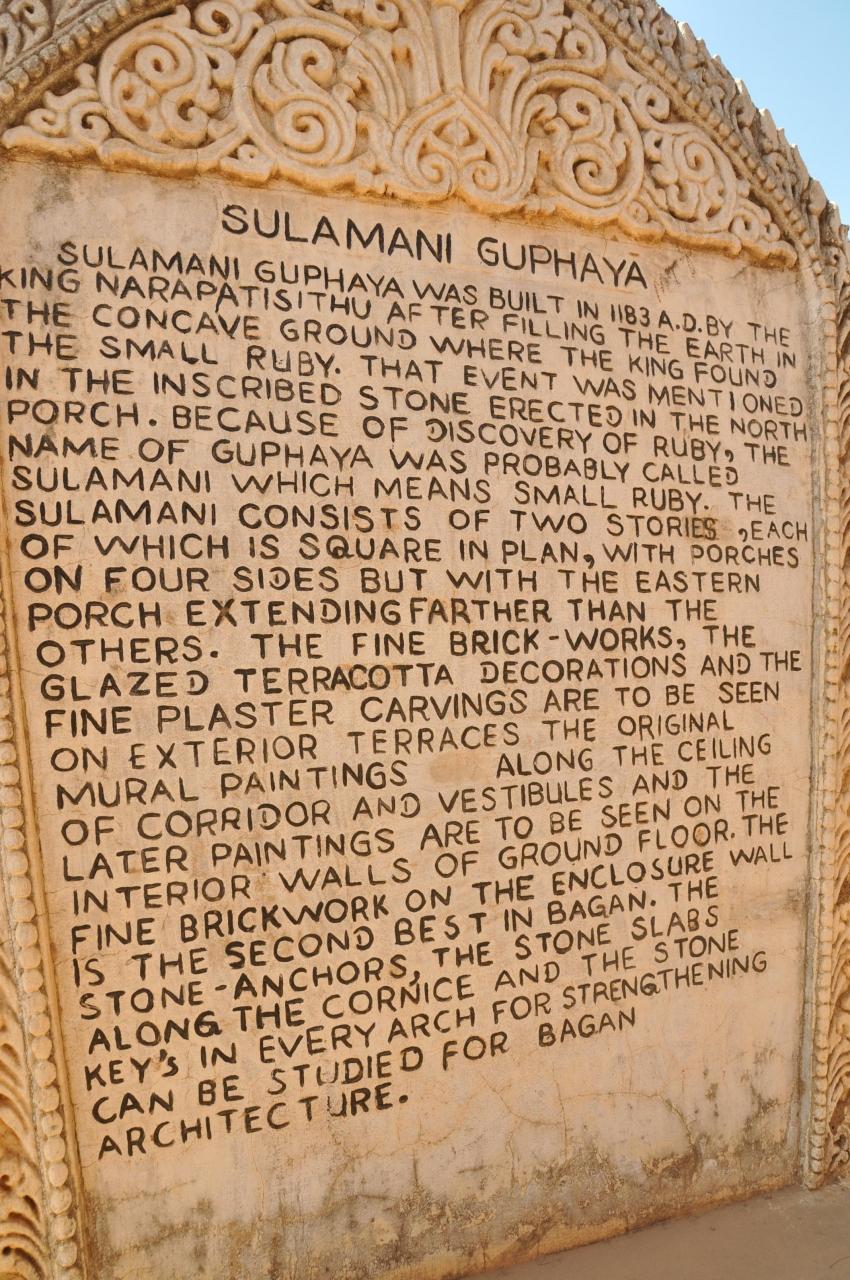 SULAMANI GUPHAYA
SULAMANI GUPHAYA WAS BUILT IN 1183 A.D. BY THE
KING NARAPATISITHU AFTER FILLING THE EARTH IN
THE CONCAVE GROUND WHERE THE KING FOUND
THE SMALL RUBY. THAT EVENT WAS MENTIONED
IN THE INSCRIBED STONE ERECTED IN THE NORTH
PORCH. BECAUSE OF DISCOVERY OF RUBY, THE
NAME OF GUPHAYA WAS PROBABLY CALLED
SULAMANI WHICH MEANS SMALL RUBY. THE
SULAMANI CONSISTS OF TWO STORIES ,EACH
OF WHICH IS SQUARE IN PLAN, WITH PORCHES
ON FOUR SIDES BUT WITH THE EASTERN
PORCH EXTENDING FARTHER THAN THE
OTHERS. THE FINE BRICK-WORKS, THE
GLAZED TERRACOTTA DECORATIONS AND THE
FINE PLASTER CARVINGS ARE TO BE SEEN
ON EXTERIOR TERRACES THE ORIGINAL
MURAL PAINTINGS ALONG THE CEILING
OF CORRIDOR AND VESTIBULES AND THE
LATER PAINTINGS ARE TO BE SEEN ON THE
INTERIOR WALLS OF GROUND FLOOR. THE
FINE BRICKWORK ON THE ENCLOSURE WALL
IS THE SECOND BEST IN BAGAN. THE
STONE-ANCHORS, THE STONE SLABS
ALONG THE CORNICE AND THE STONE
KEY'S IN EVERY ARCH FOR STRENGTHENING
CAN BE STUDIED FOR BAGAN
ARCHITECTURE.